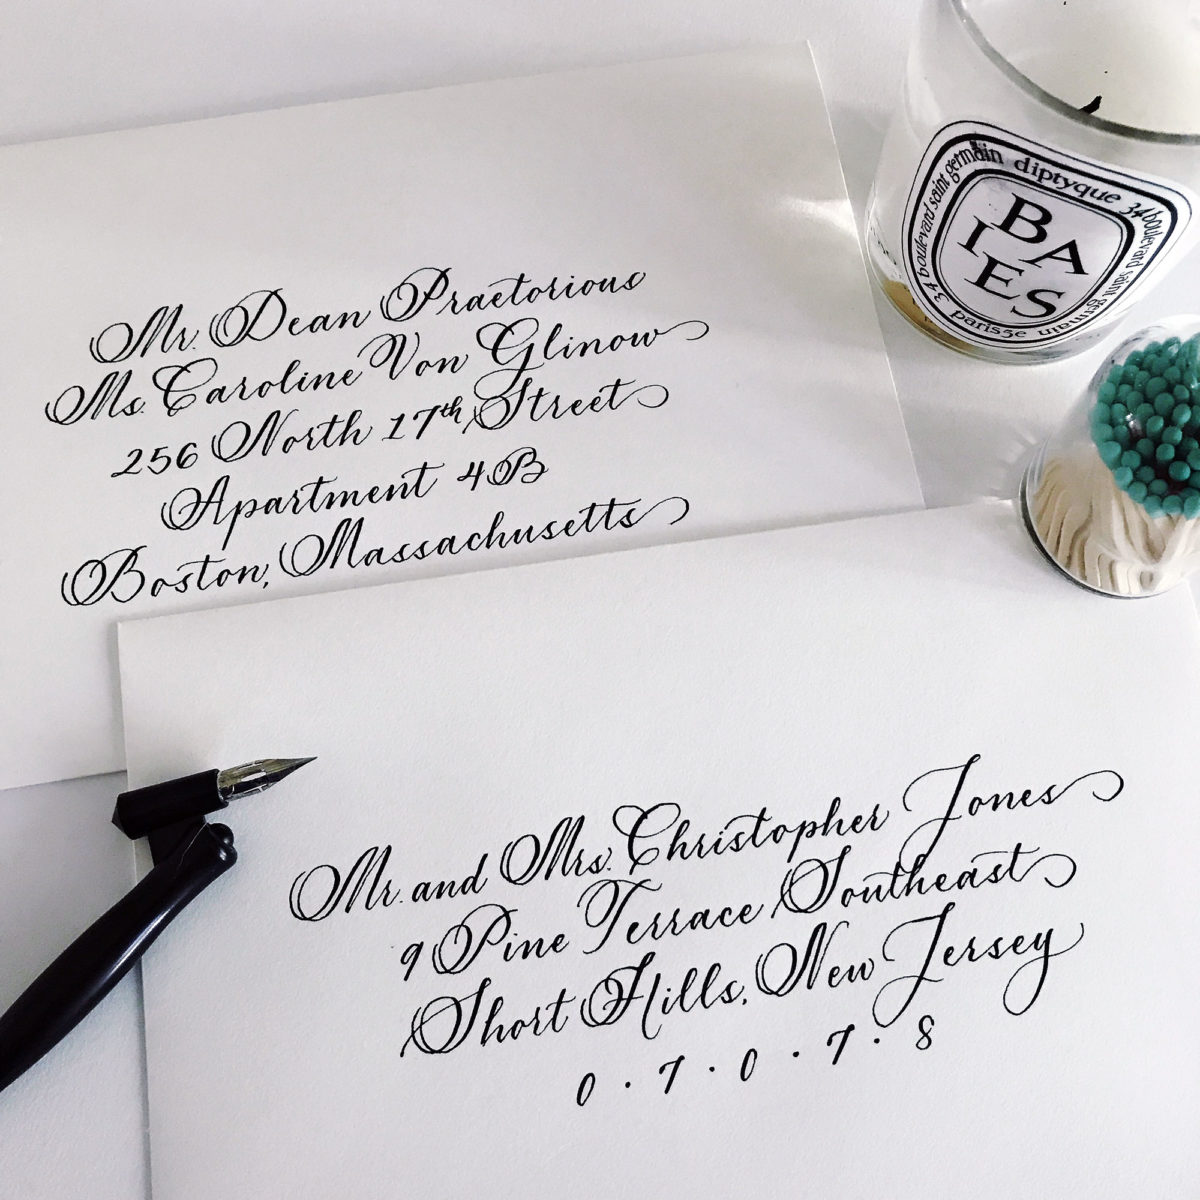 Mr. Dean Praetorious
Ms. Caroline Von Glinow
256 North 17th Street
Apartment 4B
Boston, Massachusetts
Mr. and Mrs. Christopher Jones
9 Pine Terrace Southeast
Short Hills, New Jersey
0 · 7 · 0 · 7 · 8
diptyque 34 boulevard saint germain paris5e 34 boulevard saint germain
BA
IES